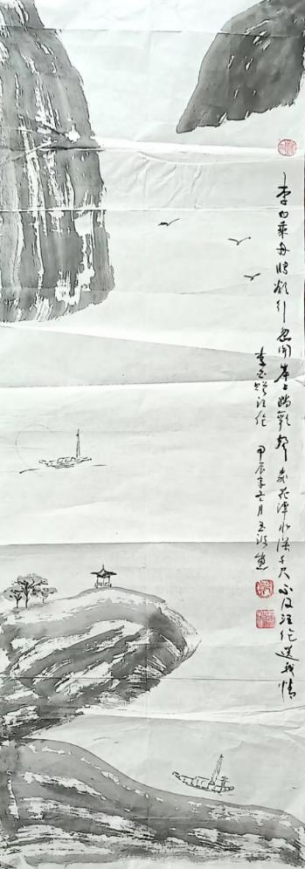 李白乘舟将欲行忽闻岸上踏歌声桃花潭水深千尺不及汪伦送我情
李白赠汪伦
甲辰年